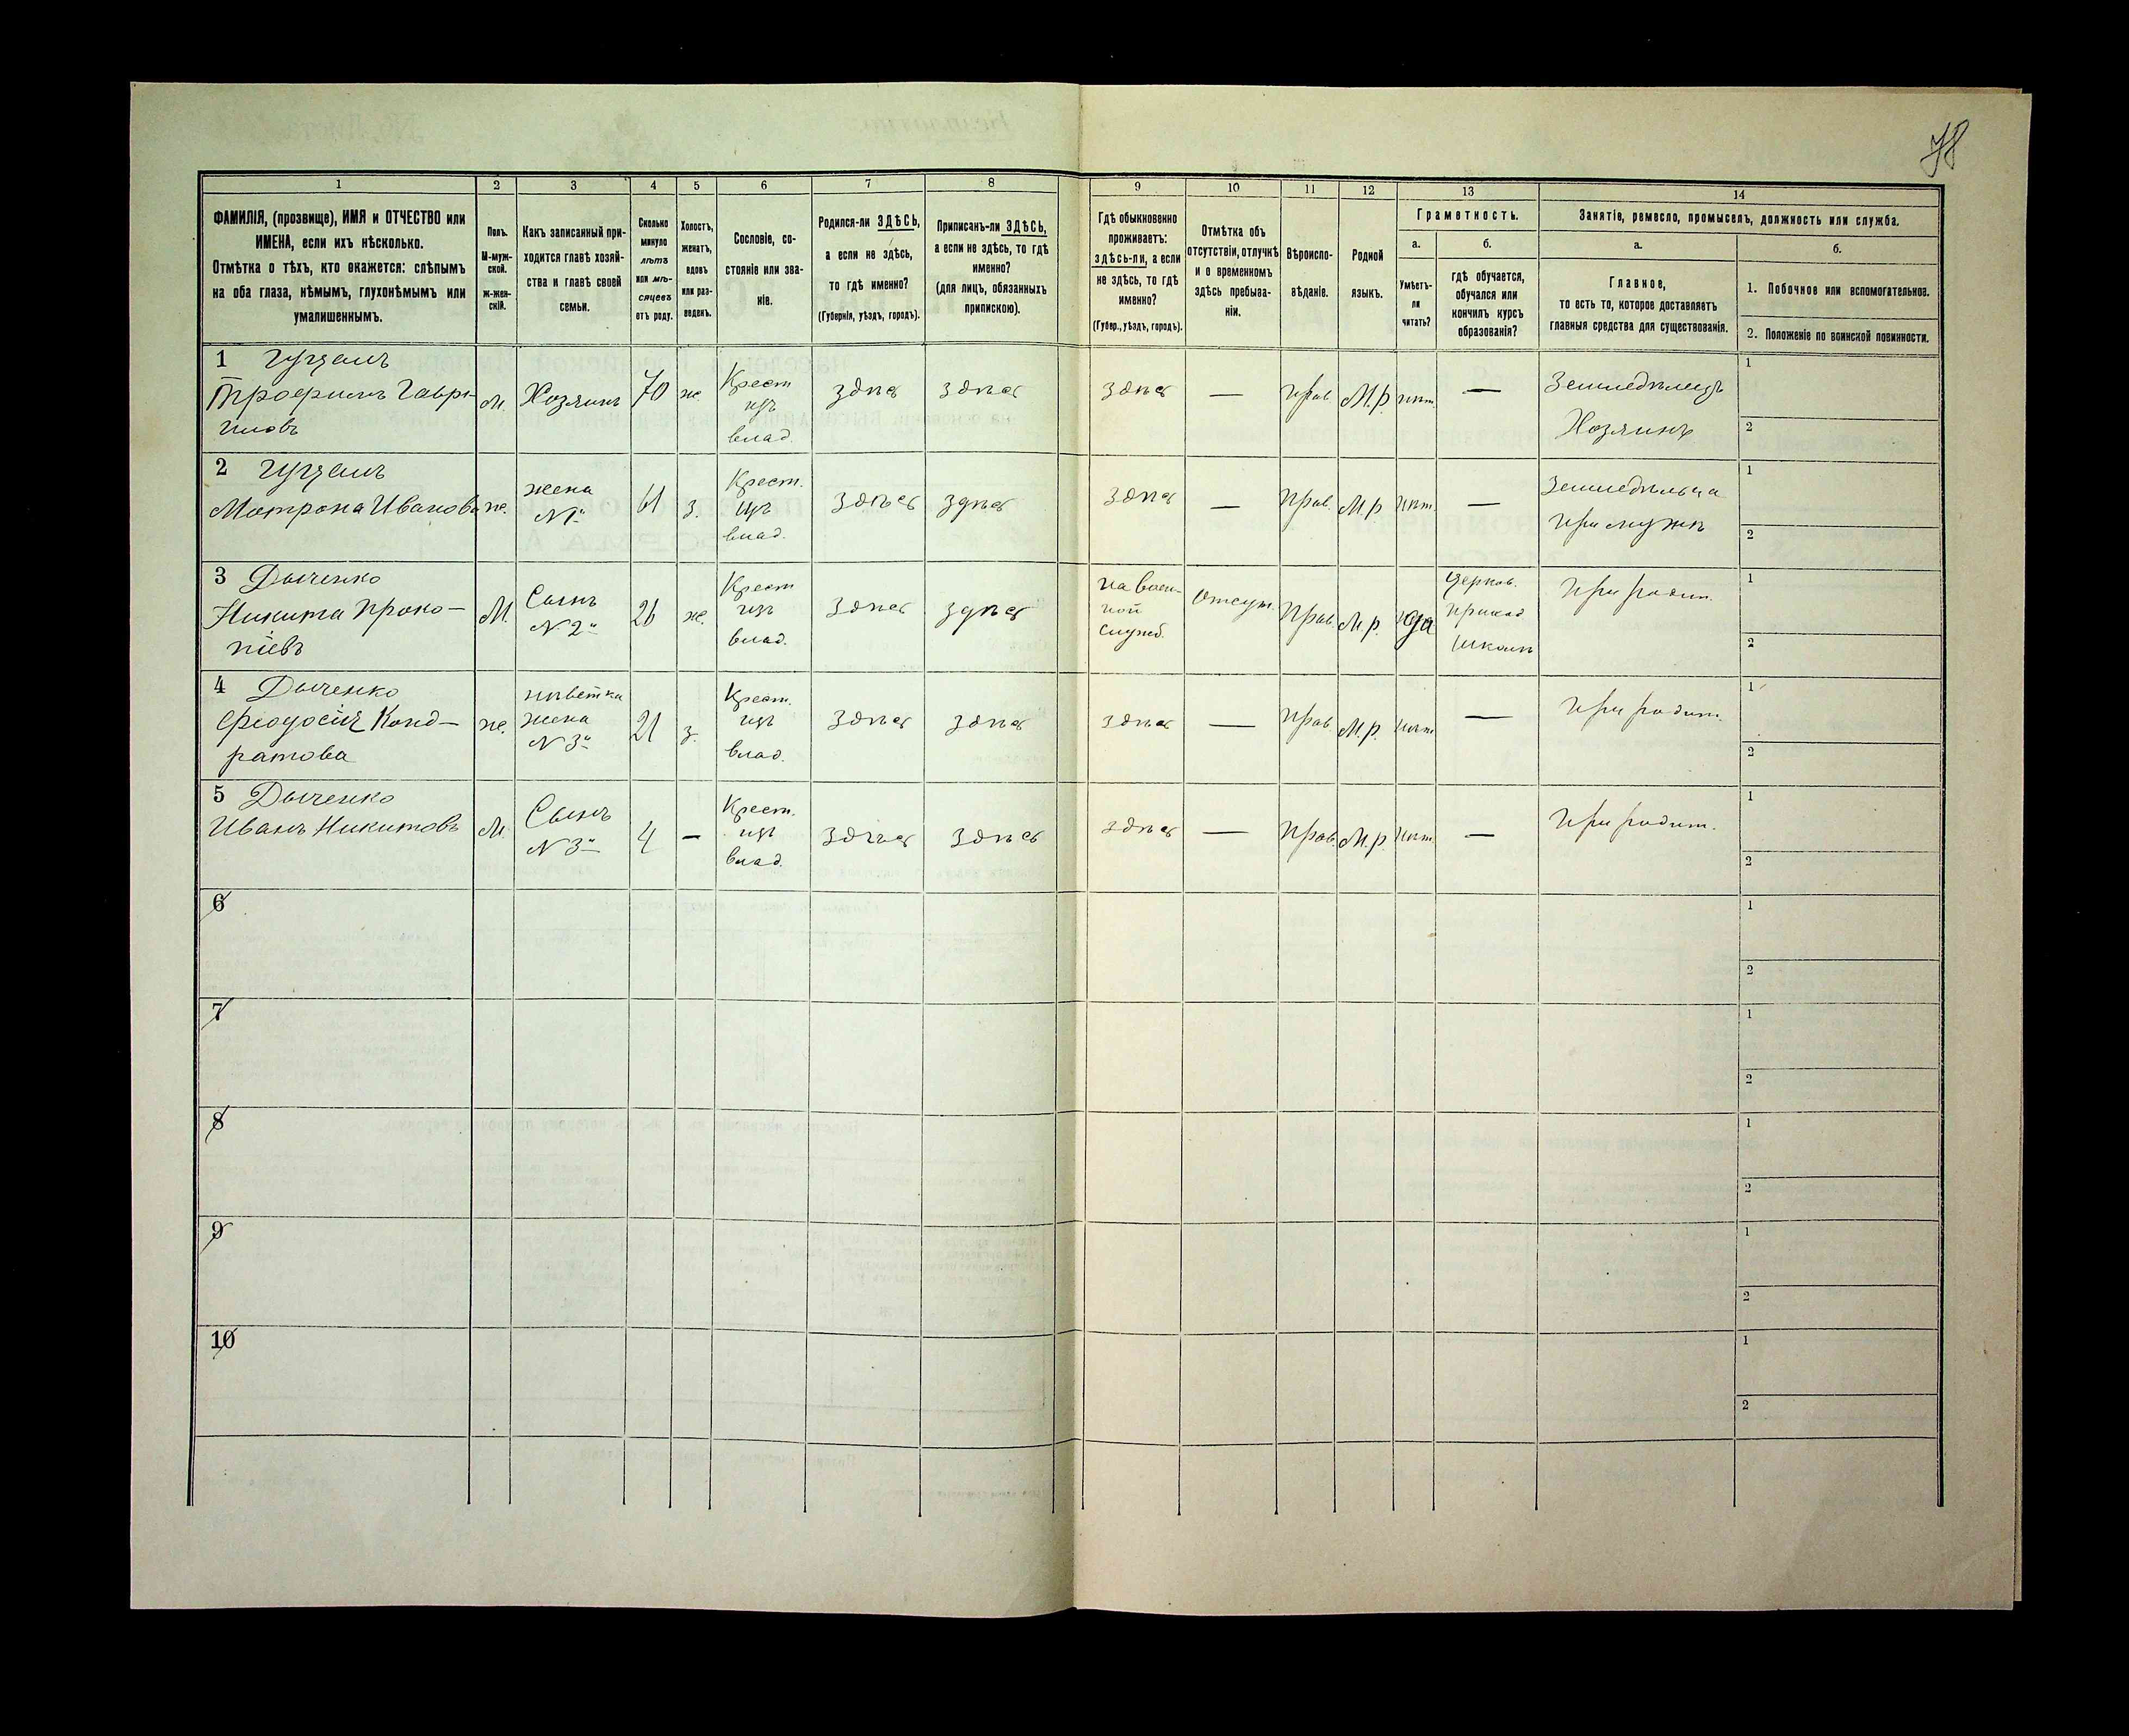 78
1
2
3
4
5
6
7
8
9
10
11
12
13
14
ФАМИЛІЯ, (прозвище), ИМЯ и ОТЧЕСТВО или
ИМЕНА, если ихъ нѣсколько.
Отмѣтка о тѣхъ, кто окажется: слѣпымъ
на оба глаза, нѣмымъ, глухонѣмымъ или
умалишеннымъ.
Полъ.
М-муж-
ской.
ж-жен-
скій.
Какъ записанный при-
ходится главѣ хозяй-
ства и главѣ своей
семьи.
Сколько
минуло
лѣтъ
или мѣ-
сяцевъ
отъ роду.
Холостъ,
женатъ,
вдовъ
или раз-
веденъ.
Сословіе, со-
стояніе или зва-
ніе.
Родился-ли ЗДѢСЬ,
а если не здѣсь,
то гдѣ именно?
(Губернія, уѣздъ, городъ).
Приписанъ-ли ЗДѢСЬ,
а если не здѣсь, то гдѣ
именно?
(для лицъ, обязанныхъ
припискою).
Гдѣ обыкновенно
проживаетъ:
здѣсь-ли, а если
не здѣсь, то гдѣ
именно?
(Губер., уѣздъ, городъ).
Отмѣтка объ
отсутствіи, отлучкѣ
и о временномъ
здѣсь пребыва-
ніи.
Вѣроиспо-
вѣданіе.
Родной
языкъ.
Грамотность.
а.
Умѣетъ-
ли
читать?
б.
гдѣ обучается,
обучался или
кончилъ курсъ
образованія?
Занятіе, ремесло, промыселъ, должность или служба.
а.
Главное,
то есть то, которое доставляетъ
главныя средства для существованія.
б.
1. Побочное или вспомогательное.
2. Положеніе по воинской повинности.
1
Трофимъ Гаври-
иловъ
М. Хозяинъ 70 ж
Крест
изъ
влад.
здѣсь здѣсь здѣсь — прав. М.р. нѣт. —
Земледѣлецъ
Хозяинъ
1
2
2
Матрона Иванова
ж.
жена
№1й
61 з.
Крест.
изъ
влад.
здѣсь здѣсь здѣсь — прав. М.р нѣт. —
Земледѣлица
при мужѣ
1
2
3 Дыченко
Никита Проко-
піевъ
М.
Сынъ
№2й
26 ж.
Крест
изъ
влад.
здѣсь здѣсь
на воен-
ной
служб.
отсут. Прав. М.р. да
церков.
приход
школѣ
при родит.
1
2
4 Дыченко
Феодосія Конд-
ратова
ж.
невѣстка
жена
№3й
21 з.
Крест.
изъ
влад.
здѣсь здѣсь здѣсь — прав. М.р. нѣт —
при родит.
1
2
5 Дыченко
Иванъ Никитовъ
М.
Сынъ
№3й
4 —
Крест.
изъ
влад.
здѣсь здѣсь здѣсь — прав. М.р. нѣт. —
при родит.
1
2
6
1
2
7
1
2
8
1
2
9
1
2
10
1
2